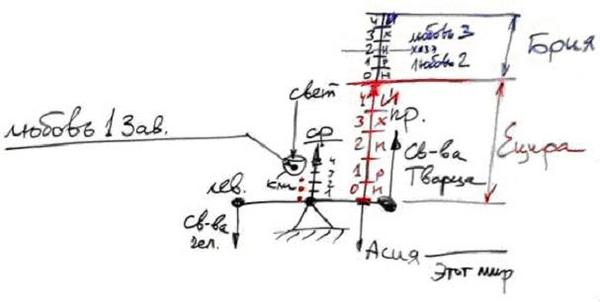 4 И
3 Х
2 Н
1 Р
0 Н
любовь 3
хазэ
любовь 2
Брия
свет
любовь 1 Зав.
ср
4
3
2
1
кли
4 И
3 Х
2 Н
1 Р
0 Н
пр.
Св-ва
Творца
Ецира
лев.
Св-ва
чел.
Асия
Этот мир